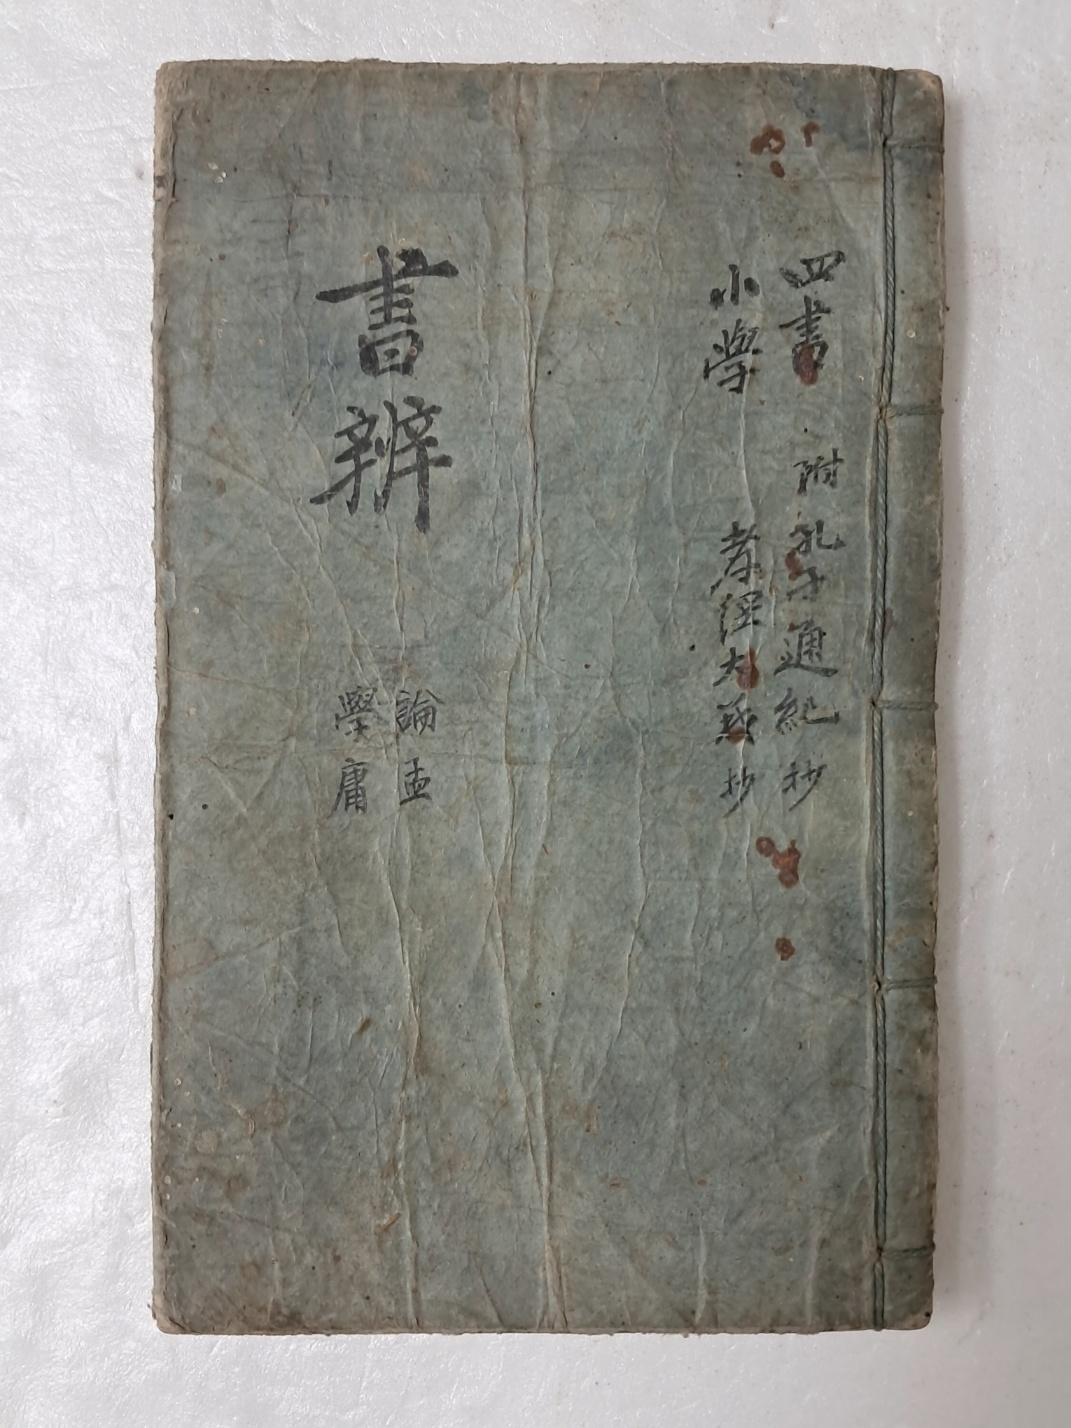 四書 附 孔子通紀抄
小學 孝経大義抄
書辨
論孟
學庸